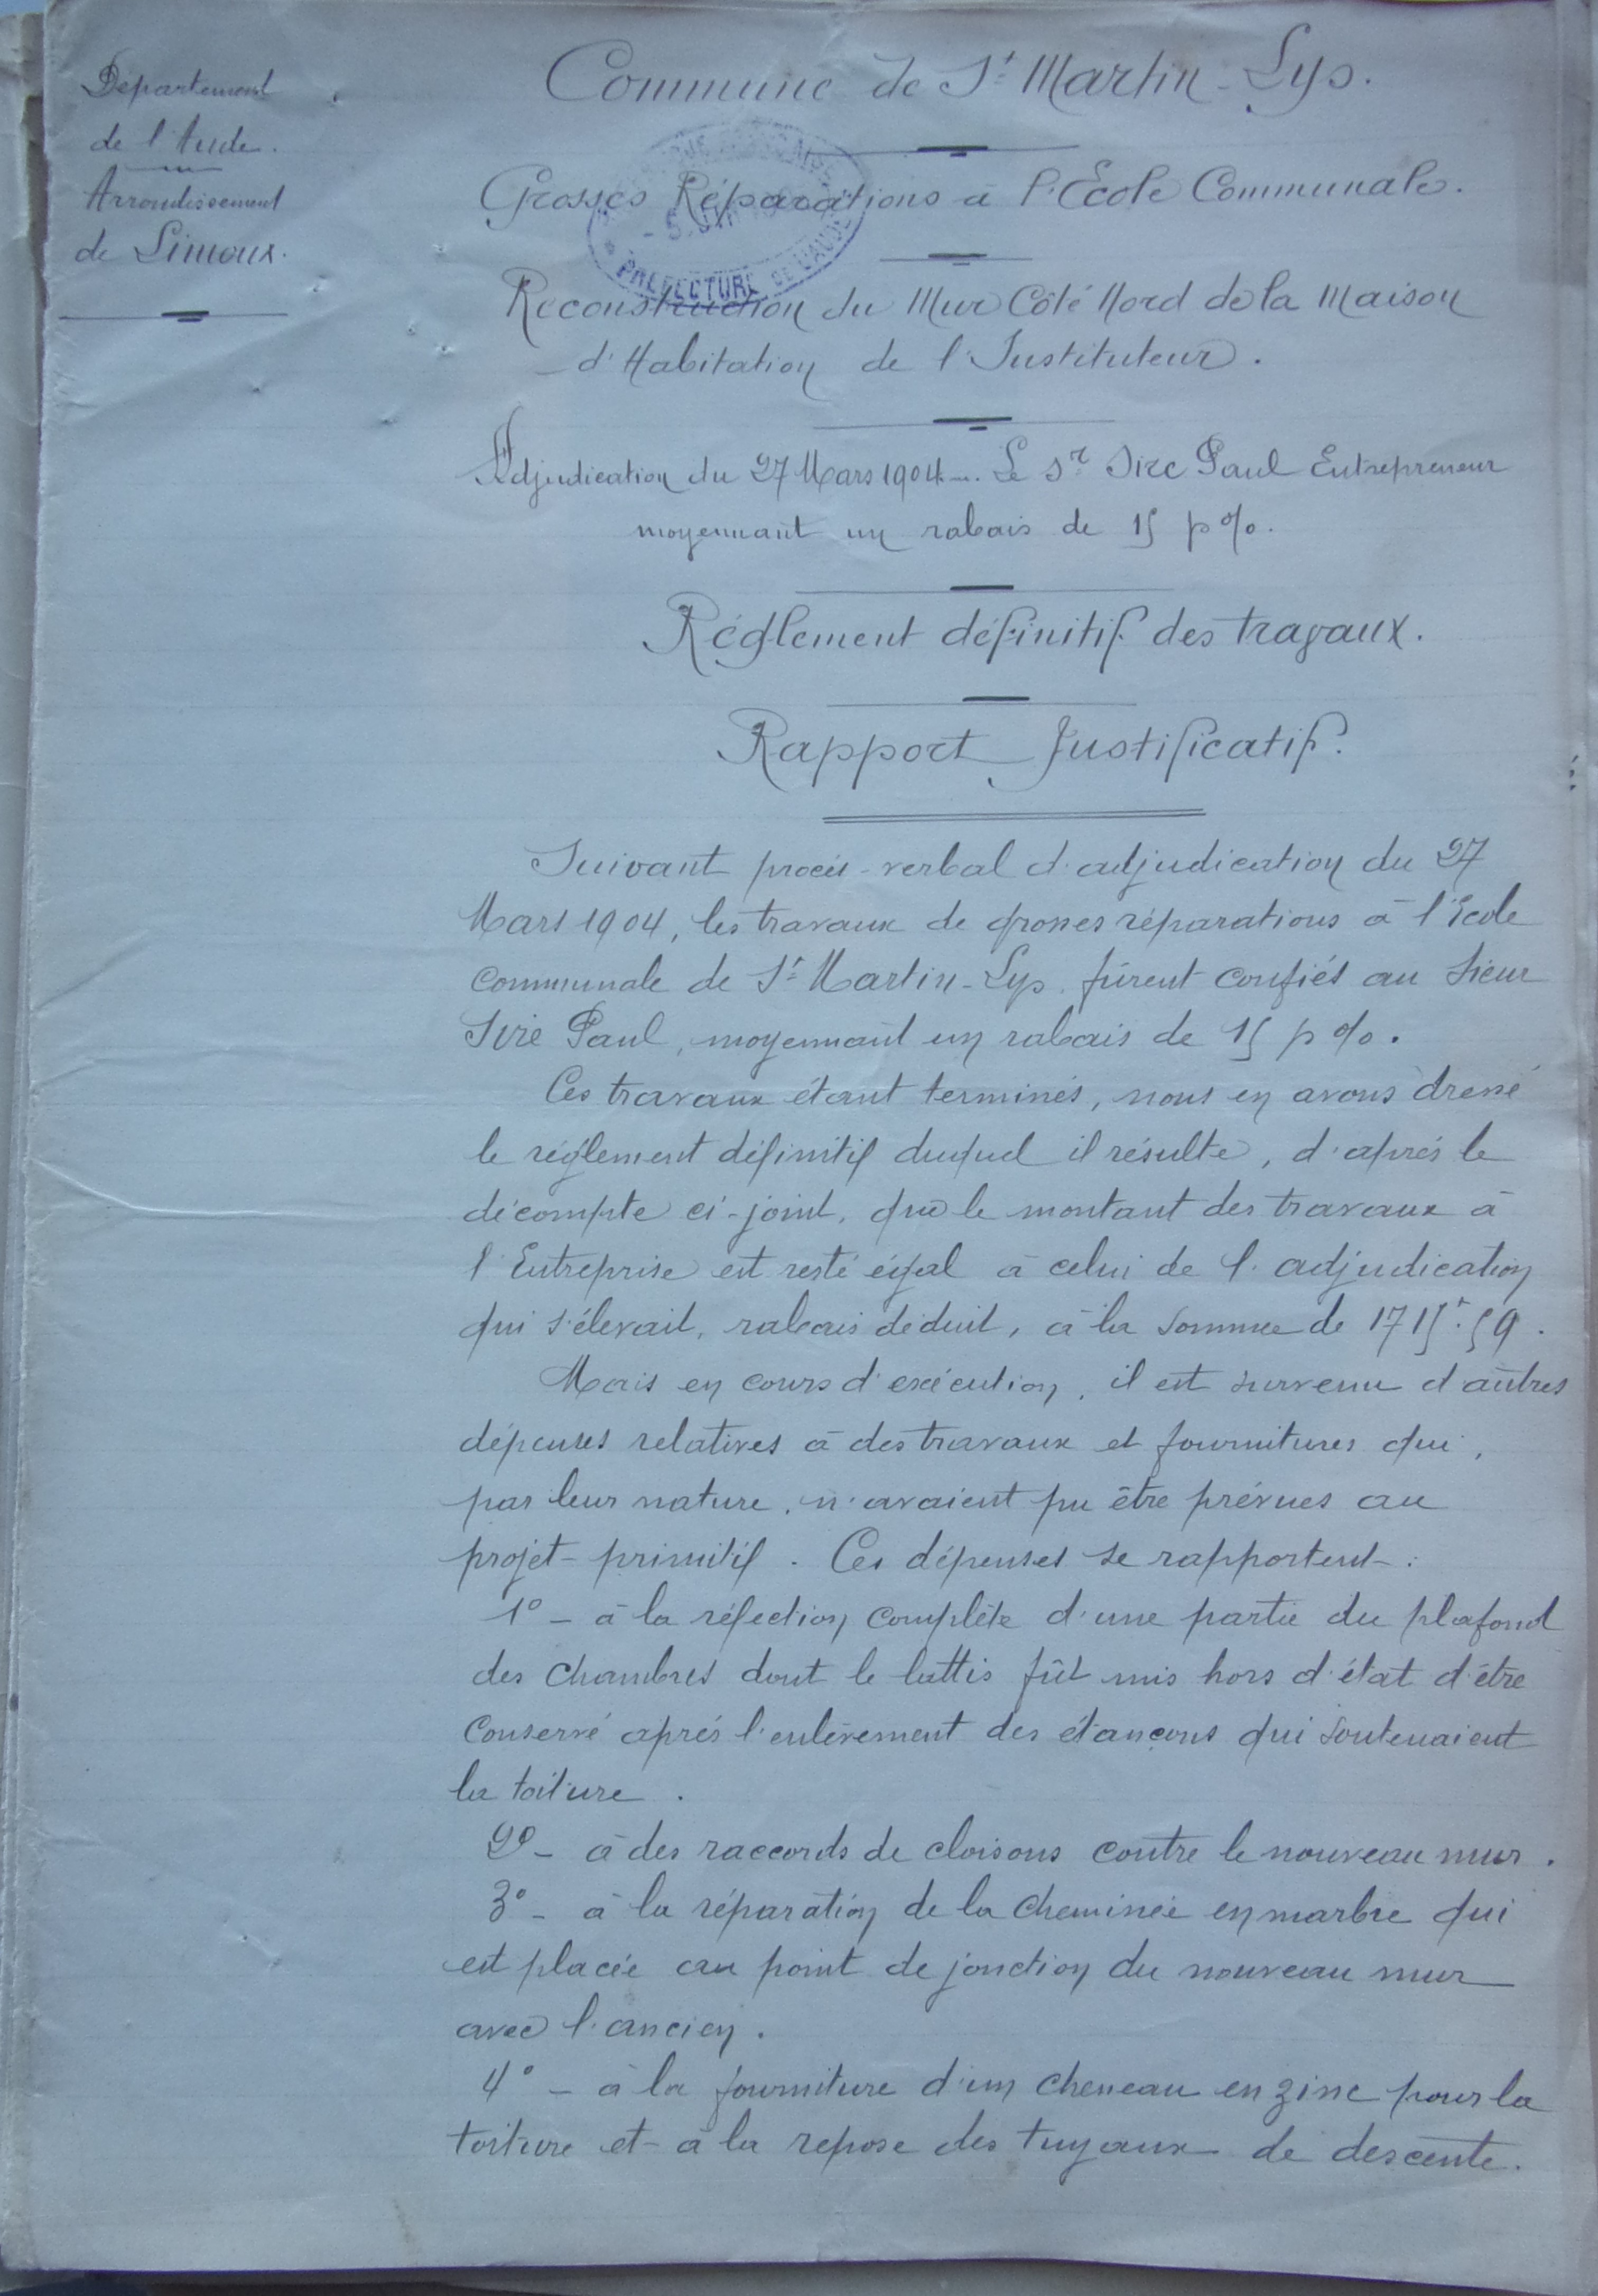 Département
de l'Aude.
Arrondissement
de Limoux.
Commune de St Martin-Lys.
Grosses Réparations à l'École Communale.
PRÉFECTURE DE L'AUDE
Reconstruction du Mur Côté Nord de la Maison
d'Habitation de l'Instituteur.
Adjudication du 27 Mars 1904 _. Le Sr Sire Paul Entrepreneur
moyennant un rabais de 15 p %.
Réglement définitif des travaux.
Rapport Justificatif.
Suivant procès-verbal d'adjudication du 27
Mars 1904, les travaux de grosses réparations à l'École
communale de St Martin-Lys, fûrent confiés au Sieur
Sire Paul, moyennant un rabais de 15 p %.
Ces travaux étant terminés, nous en avons dressé
le réglement définitif duquel il résulte, d'après le
décompte ci-joint, que le montant des travaux à
l'Entreprise est resté égal à celui de l'adjudication
qui s'élevait, rabais déduit, à la somme de 1715f.59.
Mais en cours d'exécution, il est survenu d'autres
dépenses relatives à des travaux et fournitures qui,
par leur nature, n'avaient pu être prévues au
projet primitif. Ces dépenses se rapportent :
1° - à la réfection complète d'une partie du plafond
des chambres dont le lattis fût mis hors d'état d'être
conservé après l'enlèvement des étançons qui soutenaient
la toiture.
2° - à des raccords de cloisons contre le nouveau mur.
3° - à la réparation de la cheminée en marbre qui
est placée au point de jonction du nouveau mur
avec l'ancien.
4° - à la fourniture d'un cheneau en zinc pour la
toiture et à la repose des tuyaux de descente.